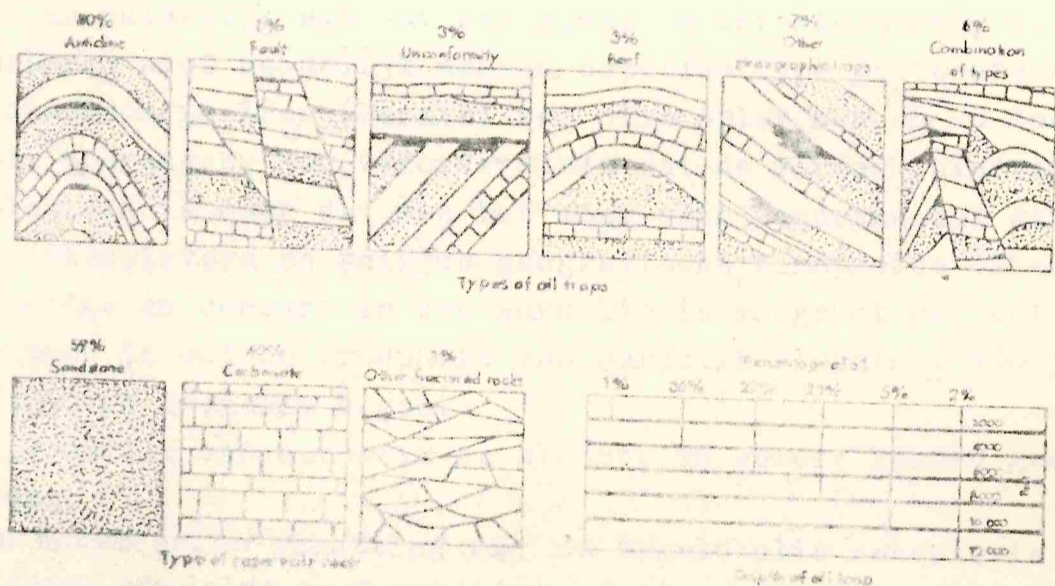 80%
Anticline
1%
Fault
3%
Unconformity
3%
Reef
7%
Other
stratigraphic traps
6%
Combination
of types
Types of oil traps
59%
Sandstone
40%
Carbonate
1%
Other fractured rocks
Type of reservoir rock
Percentage of oil
1% 5% 2%
2000
4000
6000
8000
10 000
12 000
Depth of oil